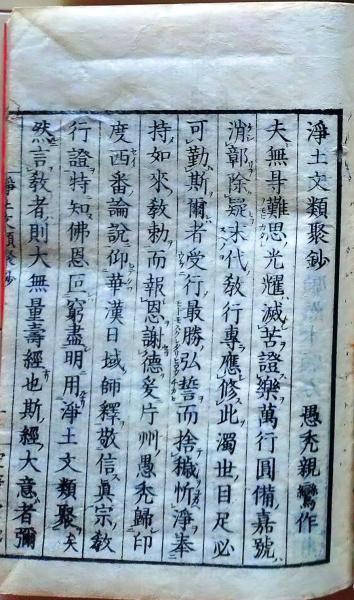 淨土文類聚鈔　愚禿親鸞作
夫無㝵難思光耀滅苦證樂萬行圓備嘉號
消鄣除疑末代教行專應修此濁世目足必
可勤斯爾者受行最勝弘誓而捨穢忻淨奉
持如來教勅而報恩謝德爰片州愚禿歸印
度西番論說仰華漢日域師釋敬信眞宗教
行證特知佛恩叵窮盡明用淨土文類聚矣
然言教者則大無量壽經也斯經大意者彌
淨土文類聚鈔